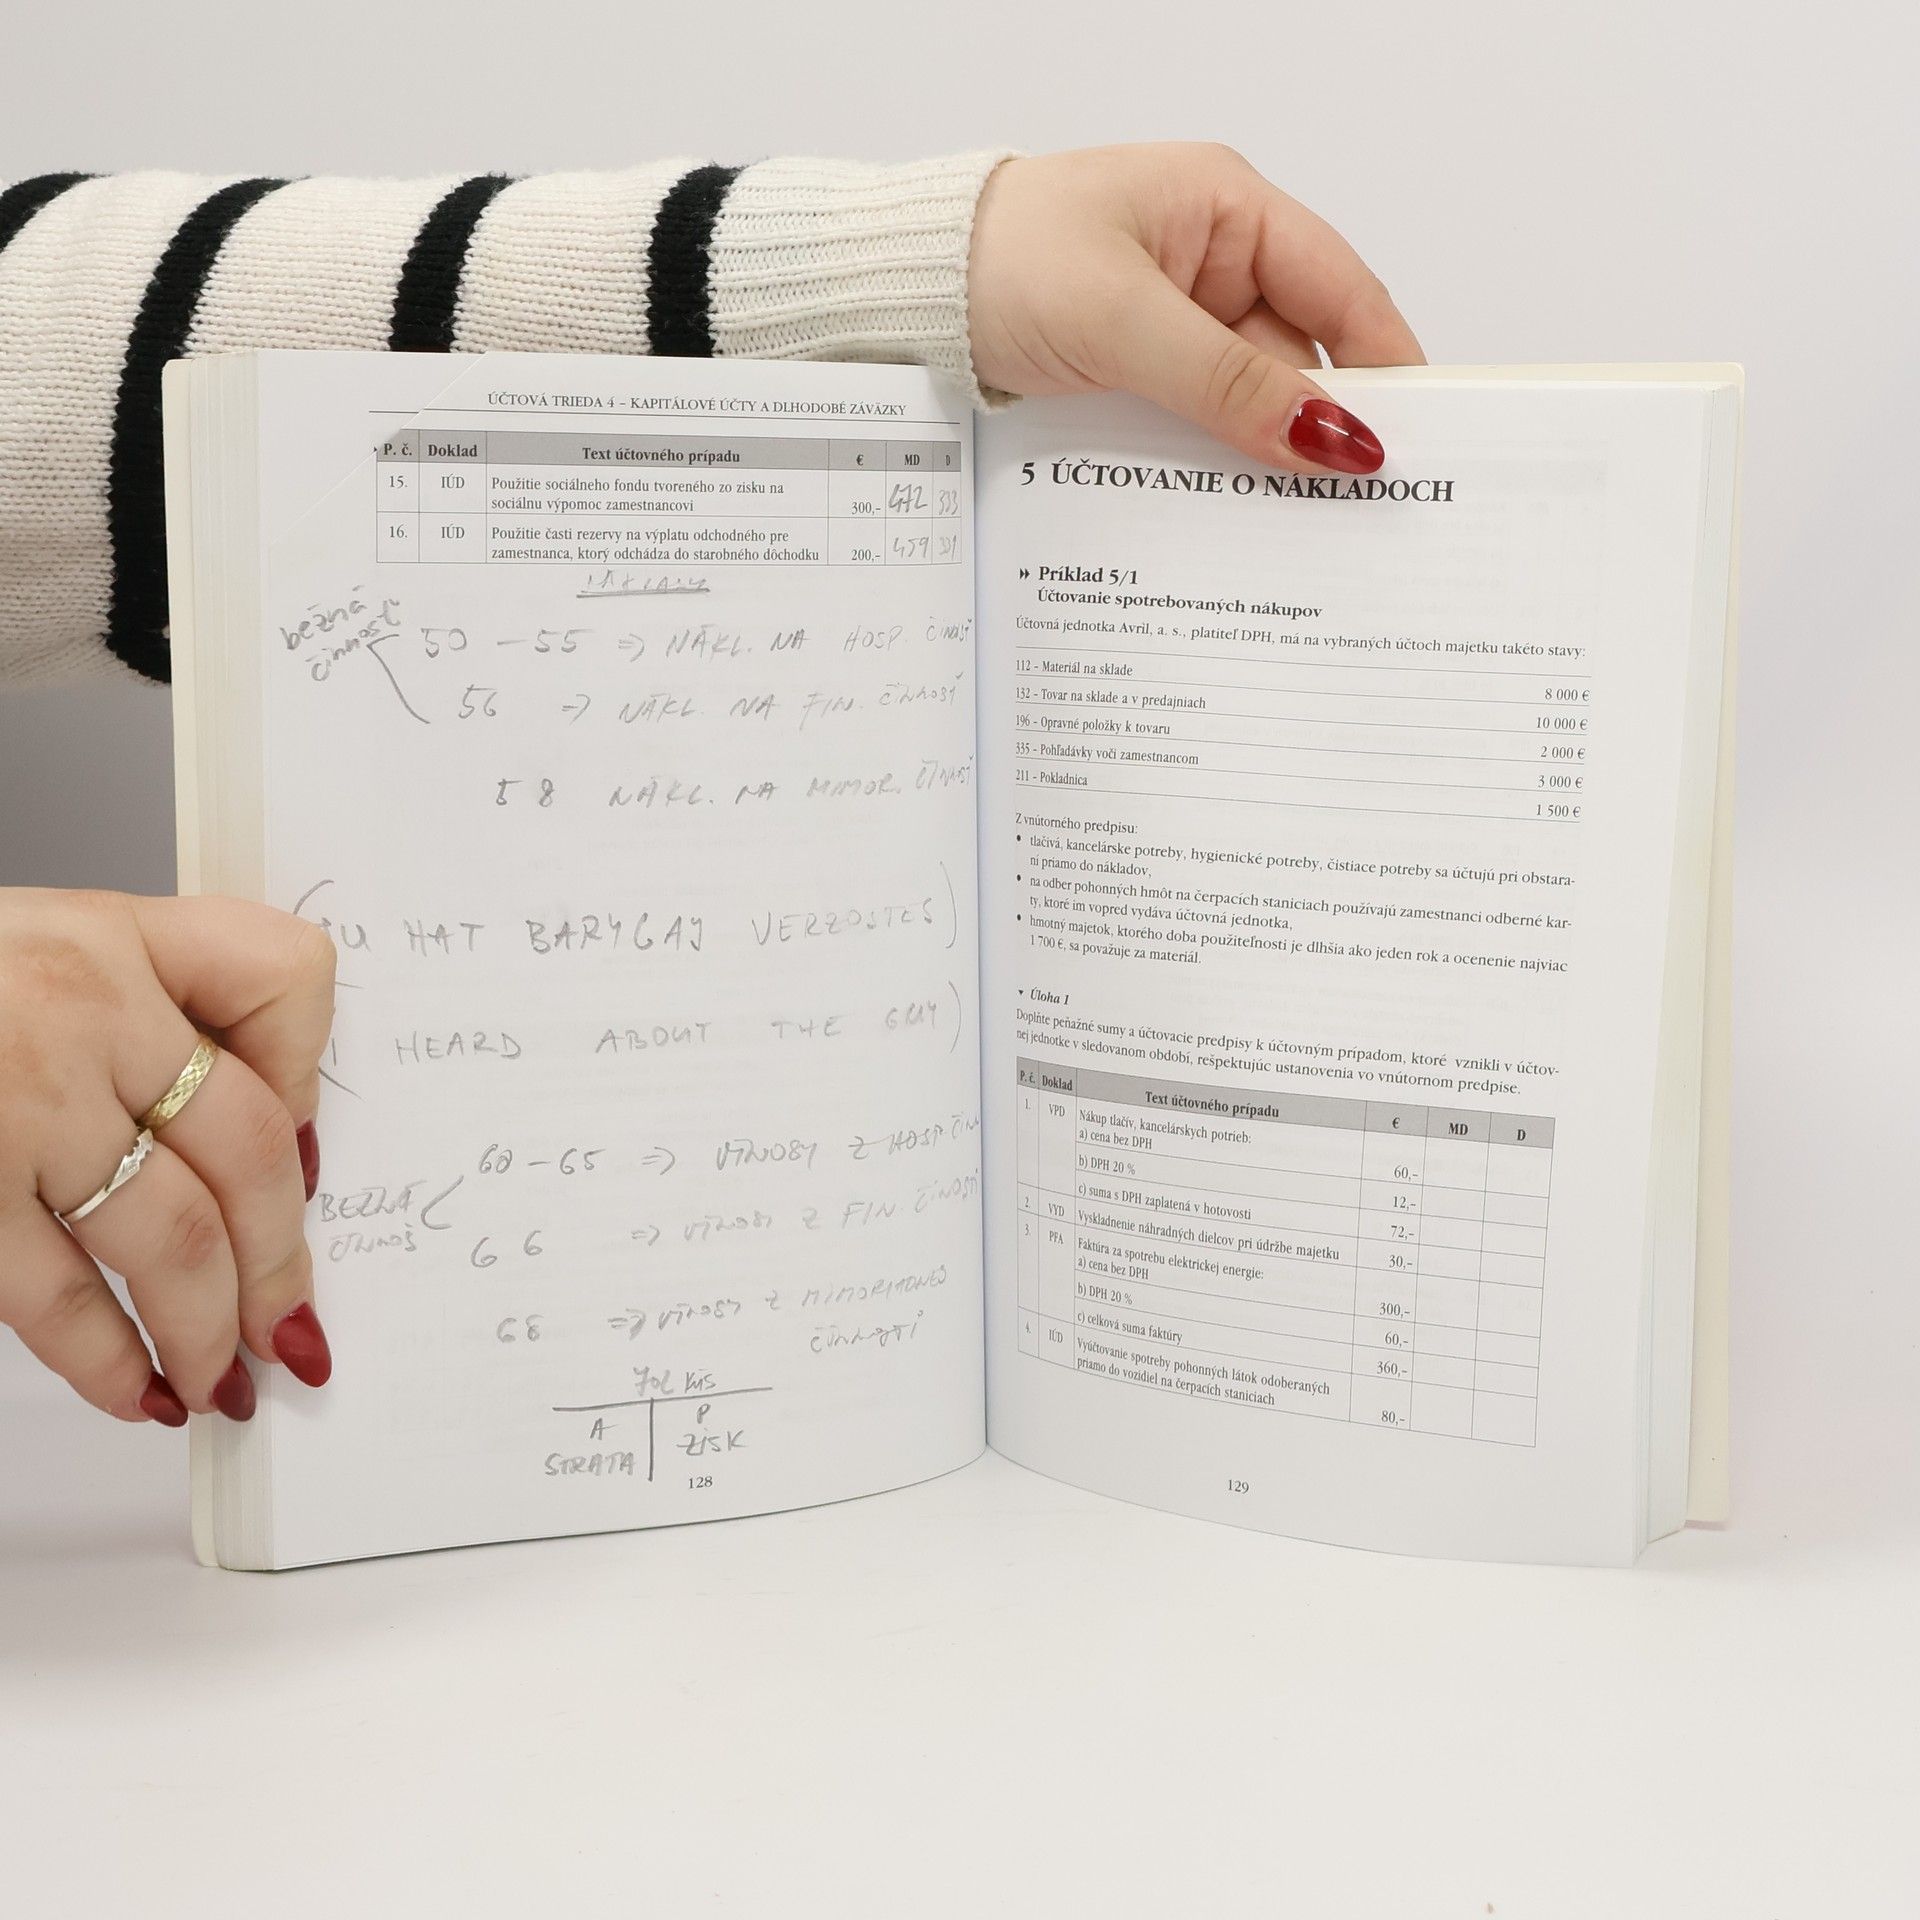 ÚČTOVÁ TRIEDA 4 – KAPITÁLOVÉ ÚČTY A DLHODOBÉ ZÁVÄZKY
P. č. Doklad Text účtovného prípadu € MD D
15. IÚD Použitie sociálneho fondu tvoreného zo zisku na
sociálnu výpomoc zamestnancovi 300,- 472 333
16. IÚD Použitie časti rezervy na výplatu odchodného pre
zamestnanca, ktorý odchádza do starobného dôchodku 200,- 459 331
bežná
činnosť
50 – 55 => NÁKL. NA HOSP. ČINNOSŤ
56 => NÁKL. NA FIN. ČINNOSŤ
58 NÁKL. NA MIMOR. ČINNOSŤ
HAT BARYGAJ VERZOSTES
I HEARD ABOUT THE GUY
60 – 65 => VÝNOSY Z HOSP. ČINN
BEŽNÁ
ČINNOS
66 => VÝNOSY Z FIN. ČINOSTI
68 => VÝNOSY Z
ČINNOSTI
702 KÚS
A P
STRATA ZISK
128
5 ÚČTOVANIE O NÁKLADOCH
Príklad 5/1
Účtovanie spotrebovaných nákupov
Účtovná jednotka Avril, a. s., platiteľ DPH, má na vybraných účtoch majetku takéto stavy:
112 - Materiál na sklade 8 000 €
132 - Tovar na sklade a v predajniach 10 000 €
196 - Opravné položky k tovaru 2 000 €
335 - Pohľadávky voči zamestnancom 3 000 €
211 - Pokladnica 1 500 €
Z vnútorného predpisu:
• tlačivá, kancelárske potreby, hygienické potreby, čistiace potreby sa účtujú pri obstara-
ní priamo do nákladov,
• na odber pohonných hmôt na čerpacích staniciach používajú zamestnanci odberné kar-
ty, ktoré im vopred vydáva účtovná jednotka,
• hmotný majetok, ktorého doba použiteľnosti je dlhšia ako jeden rok a ocenenie najviac
1 700 €, sa považuje za materiál.
▾ Úloha 1
Doplňte peňažné sumy a účtovacie predpisy k účtovným prípadom, ktoré vznikli v účtov-
nej jednotke v sledovanom období, rešpektujúc ustanovenia vo vnútornom predpise.
P. č. Doklad Text účtovného prípadu € MD D
1. VPD Nákup tlačív, kancelárskych potrieb:
a) cena bez DPH 60,-
b) DPH 20 % 12,-
c) suma s DPH zaplatená v hotovosti 72,-
2. VYD Vyskladnenie náhradných dielcov pri údržbe majetku 30,-
3. PFA Faktúra za spotrebu elektrickej energie:
a) cena bez DPH 300,-
b) DPH 20 % 60,-
c) celková suma faktúry 360,-
4. IÚD Vyúčtovanie spotreby pohonných látok odoberaných
priamo do vozidiel na čerpacích staniciach 80,-
129